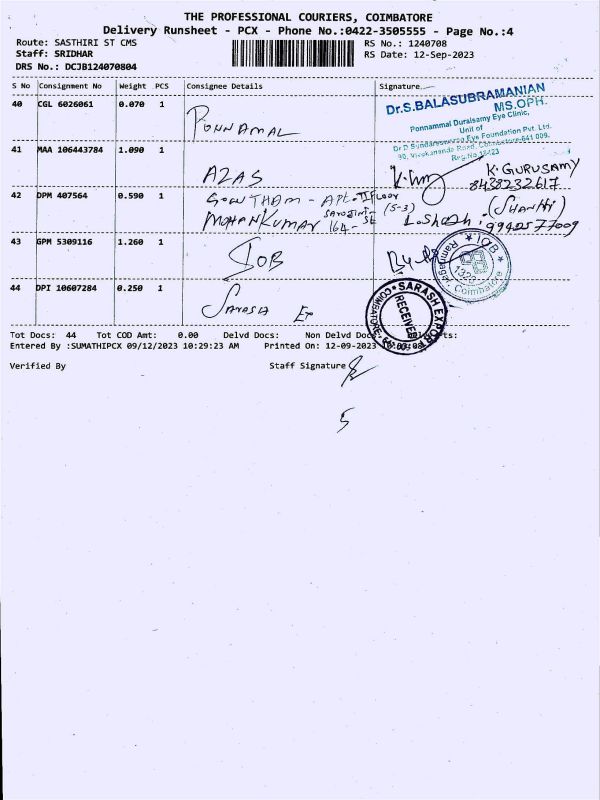 THE PROFESSIONAL COURIERS, COIMBATORE
Delivery Runsheet - PCX - Phone No.:0422-3505555 - Page No.:4
Route: SASTHIRI ST CMS
RS No.: 1240708
Staff: SRIDHAR
RS Date: 12-Sep-2023
DRS No.: DCJB124070804
S No Consignment No Weight PCS Consignee Details Signature
40 CGL 6026061 0.070 1 PONNAMAL
Dr.S.BALASUBRAMANIAN
MS.OPH.
Ponnammal Duraisamy Eye Clinic,
Unit of
Dr D Sundareswaran Eye Foundation Pvt. Ltd.
90, Vivekananda Road, Coimbatore-641 009.
Reg.No.18423
41 MAA 106443784 1.090 1 AZAS
K. GURUSAMY
8438232617
42 DPM 407564 0.590 1 GOWTHAM - APt. II FLOOR
MOHANKUMAR 164- (5-3)
(SHANthi)
9942577009
43 GPM 5309116 1.260 1 IOB
IOBI
Ramnagar, Coimbatore
44 DPI 10607284 0.250 1 SARASH
SARASH EXPORT
RECEIVED
COIMBATORE
Tot Docs: 44 Tot COD Amt: 0.00 Delvd Docs: Non Delvd Docs
Entered By :SUMATHIPCX 09/12/2023 10:29:23 AM Printed On: 12-09-2023
Verified By Staff Signature
5